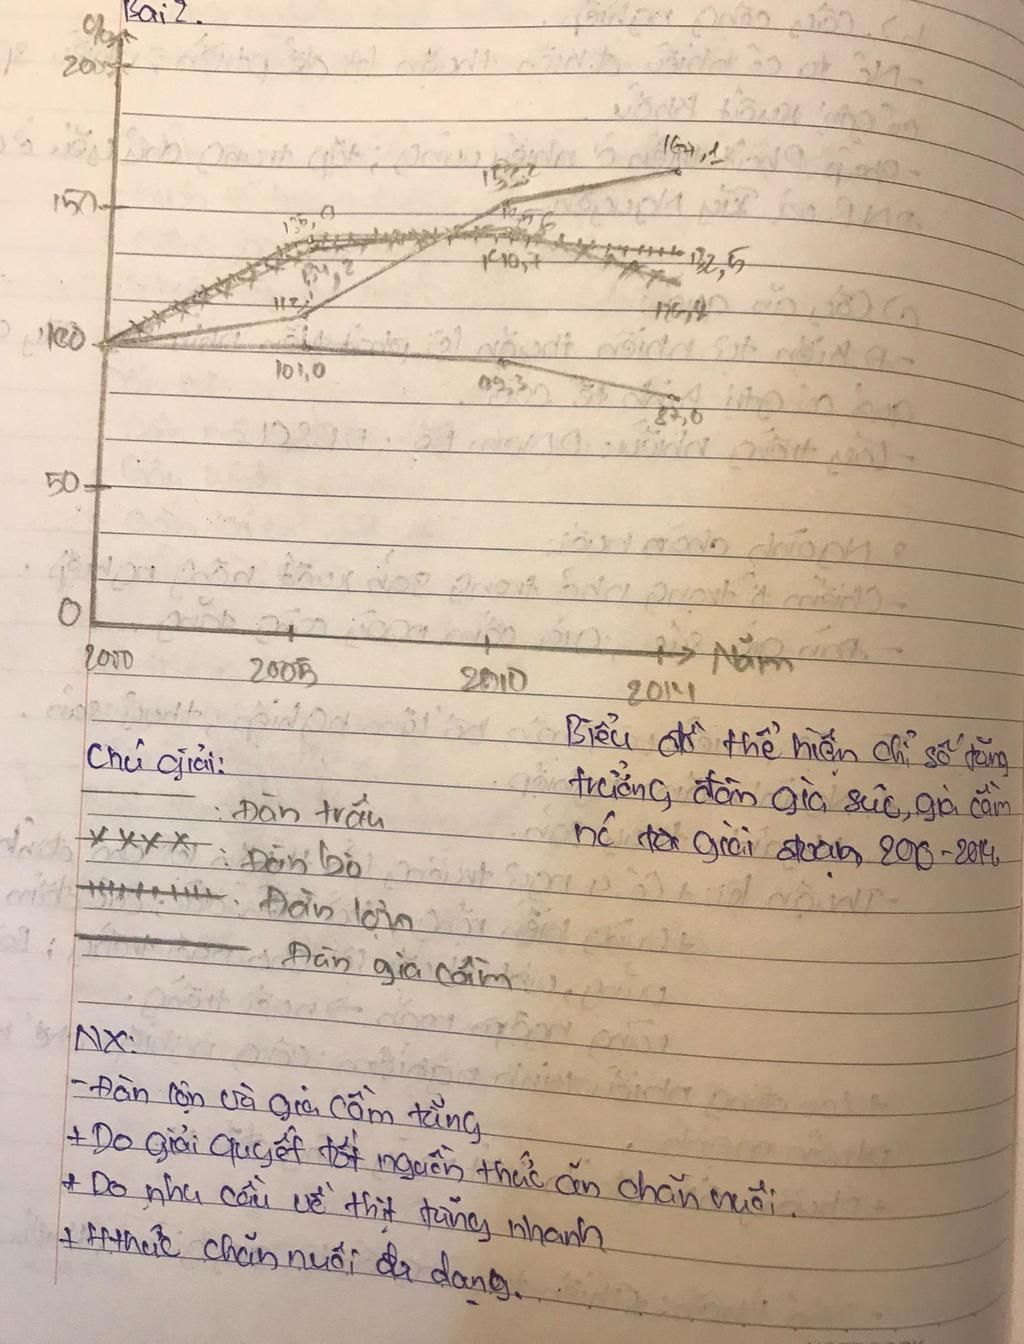 Bài 2.
%
200
150
100
50
0
167,1
152,2
135,0
132,5
134,2
140,7
112,
101,0
99,3
87,0
2000
2005
2010
2014
Năm
Biểu đồ thể hiện chỉ số tăng
trưởng đàn gia súc, gia cầm
giai đoạn
Chú giải:
: Đàn trâu
: Đàn bò
: Đàn lợn
: Đàn gia cầm
NX:
- Đàn lợn và gia cầm tăng
+ Do giải quyết tốt nguồn thức ăn chăn nuôi.
+ Do nhu cầu về thịt tăng nhanh
+ Hthức chăn nuôi đa dạng.